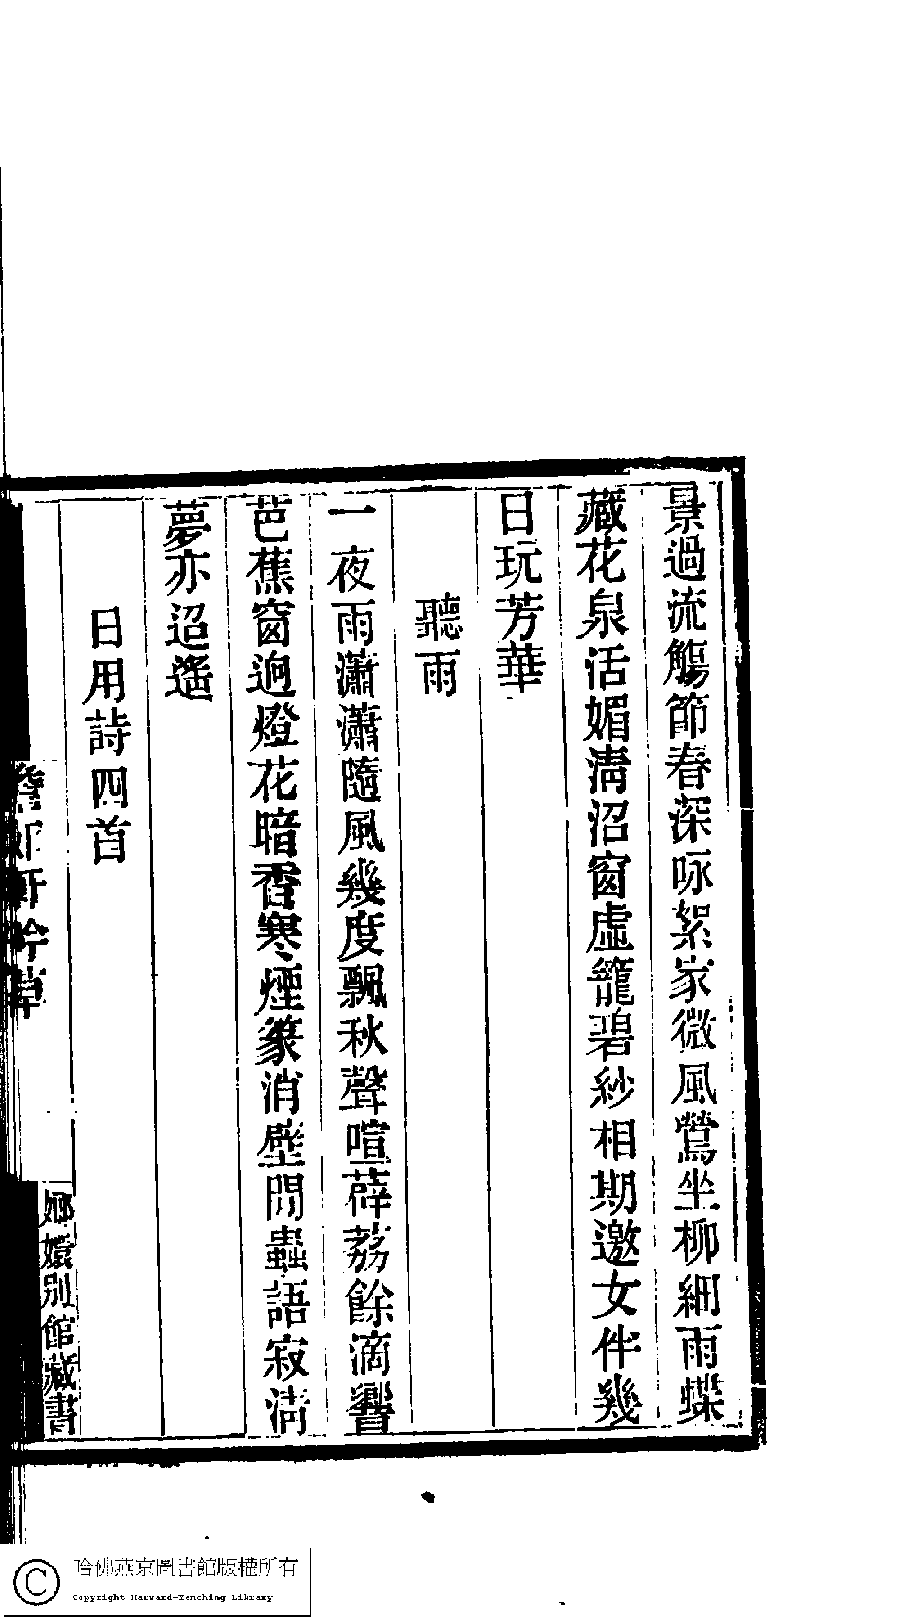 景過流觴節春深咏絮家微風鶯坐柳細雨蝶
藏花泉活媚淸沼窗虛籠碧紗相期邀女伴幾
日玩芳華
聽雨
一夜雨瀟瀟隨風幾度飄秋聲喧薜荔餘滴響
芭蕉窗迥燈花暗香寒煙篆消壁閒蟲語寂淸
夢亦迢遙
日用詩四首
軒吟草
嫏嬛別館藏書
哈佛燕京圖書館版權所有
Copyright Harvard-Yenching Library